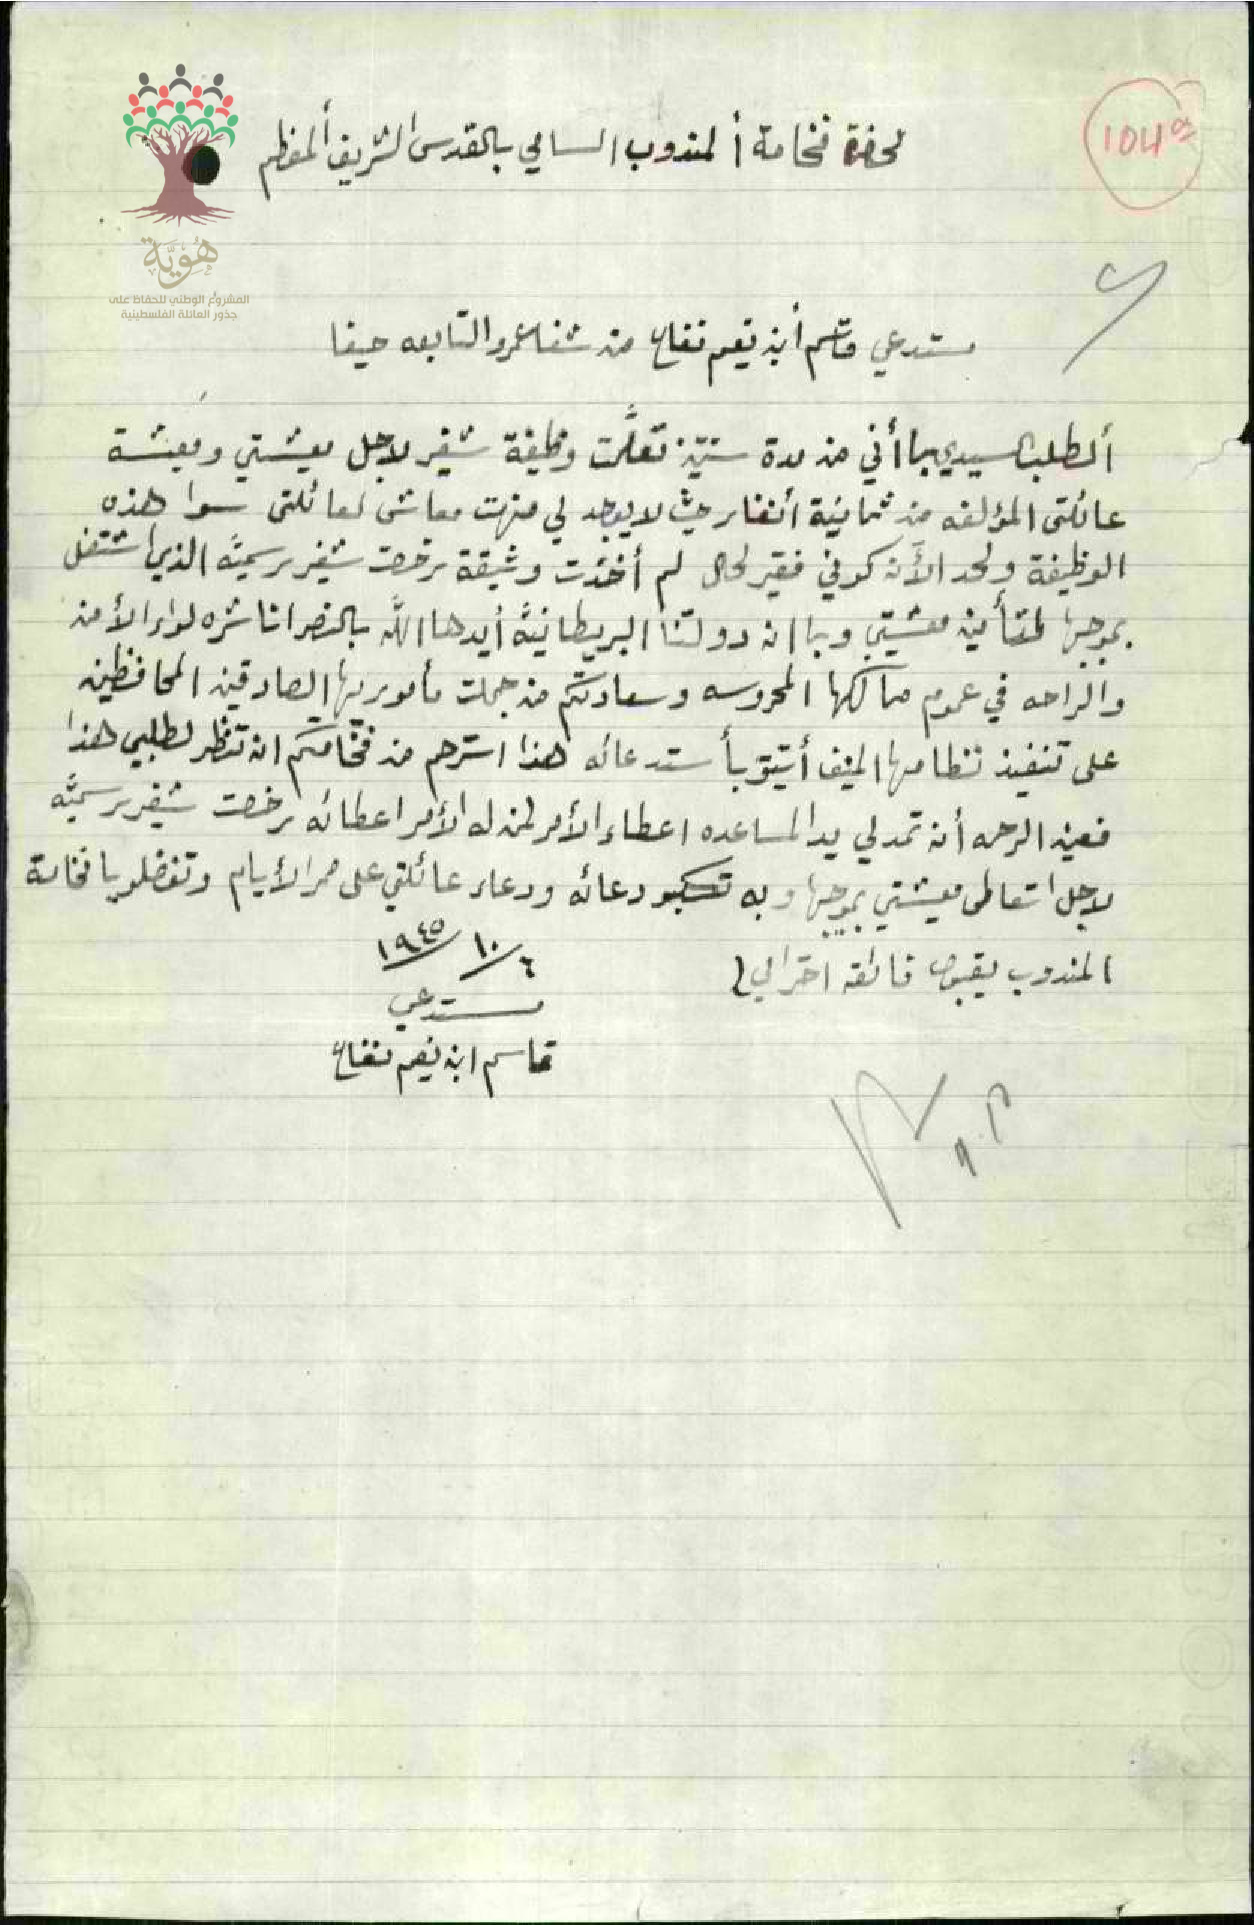 104a
هُوِيَّة
المشروع الوطني للحفاظ على
جذور العائلة الفلسطينية
لحضرة فخامة ألمندوب السامي بالقدس الشريف ألمعظم
مستدعي قاسم أبن نعيم نفاع من شفاعمرو التابعه حيفا
ألطلب سيدي بما أني من مدة سنتين تعلَّمت وظيفة شفير لاجل معيشتي ومعيشة
عائلتي المؤلفه من ثمانية أنفار حيث لا يوجد لي منهت معاش لعائلتي سوا هذه
الوظيفة ولحد الأن كوني فقير لحال لم أخذت وثيقة رخصت شفير رسميَّه الذي اشتغل
بموجبها لتأمين معيشتي وبما ان دولتنا البريطانيَّه أيدها اللَّه بالنصر ناشره لواء الأمن
والراحه في عموم ممالكها المحروسه وسعادتكم من جملت مأموريها الصادقين المحافظين
على تنفيذ نظامها المنيف أتيت بأستدعائه هذا استرحم من فخامتكم ان تنظر لطلبي هذا
فعين الرحمه أن تمد لي يد المساعده اعطاء الأمر لمن له الأمر اعطائه رخصت شفير رسميَّه
لاجل اتعاطى معيشتي بموجبها وبه تكسبو دعائه ودعاء عائلتي على ممر الأيام وتفضلو يا فخامة
المندوب بقبول فائقه احترامي
٦/١٠/١٩٤٥
مستدعي
قاسم ابن نعيم نفاع